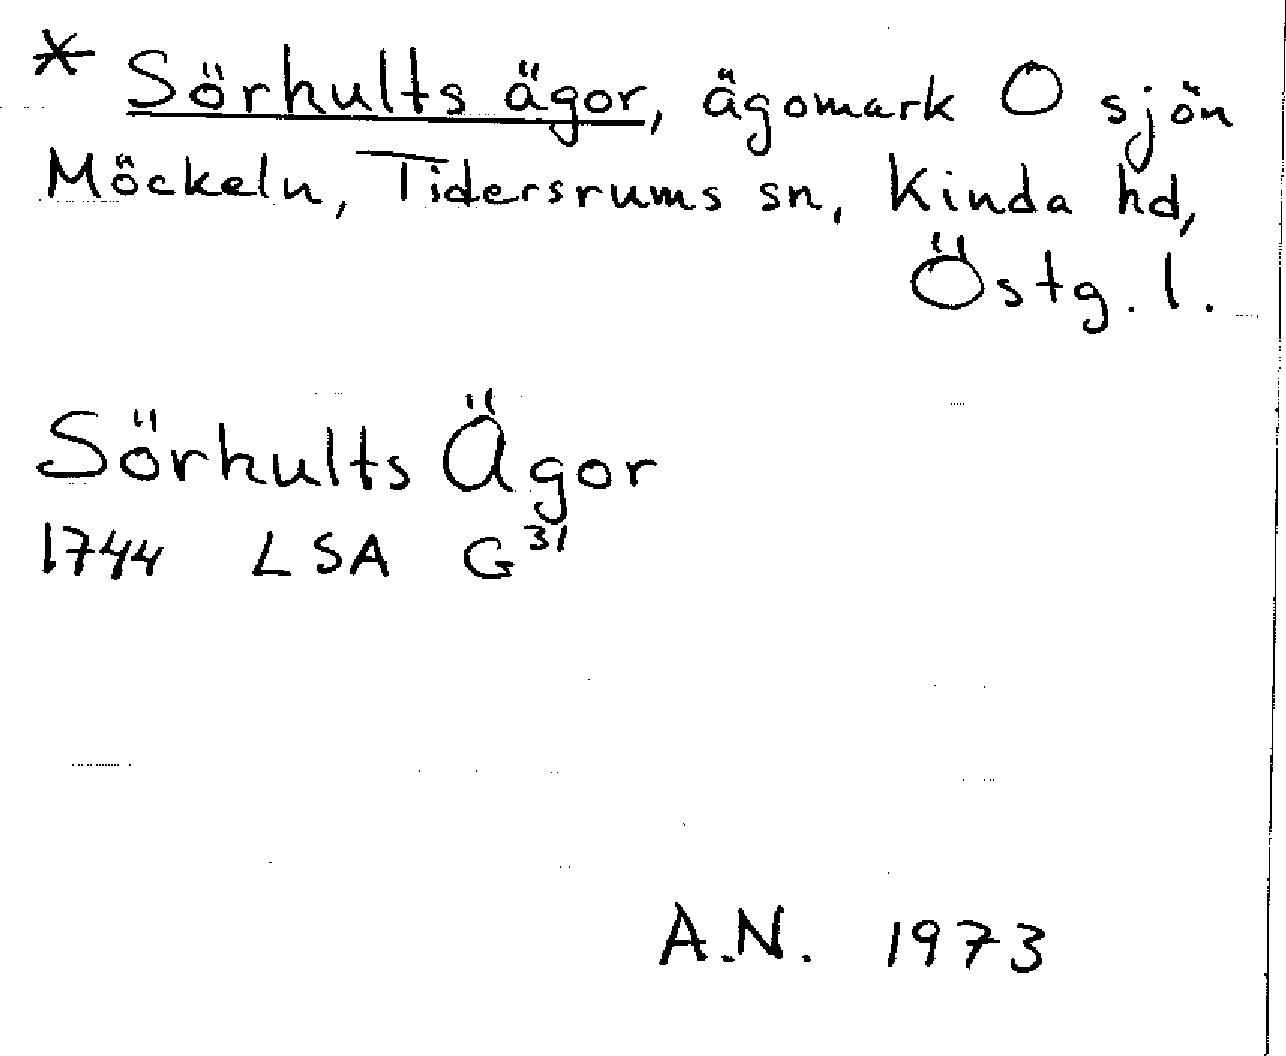 * Sörhults ägor, ägomark O sjön
Möckeln, Tidersrums sn, Kinda hd,
Östg. l.
Sörhults Ägor
1744 LSA G31
A.N. 1973